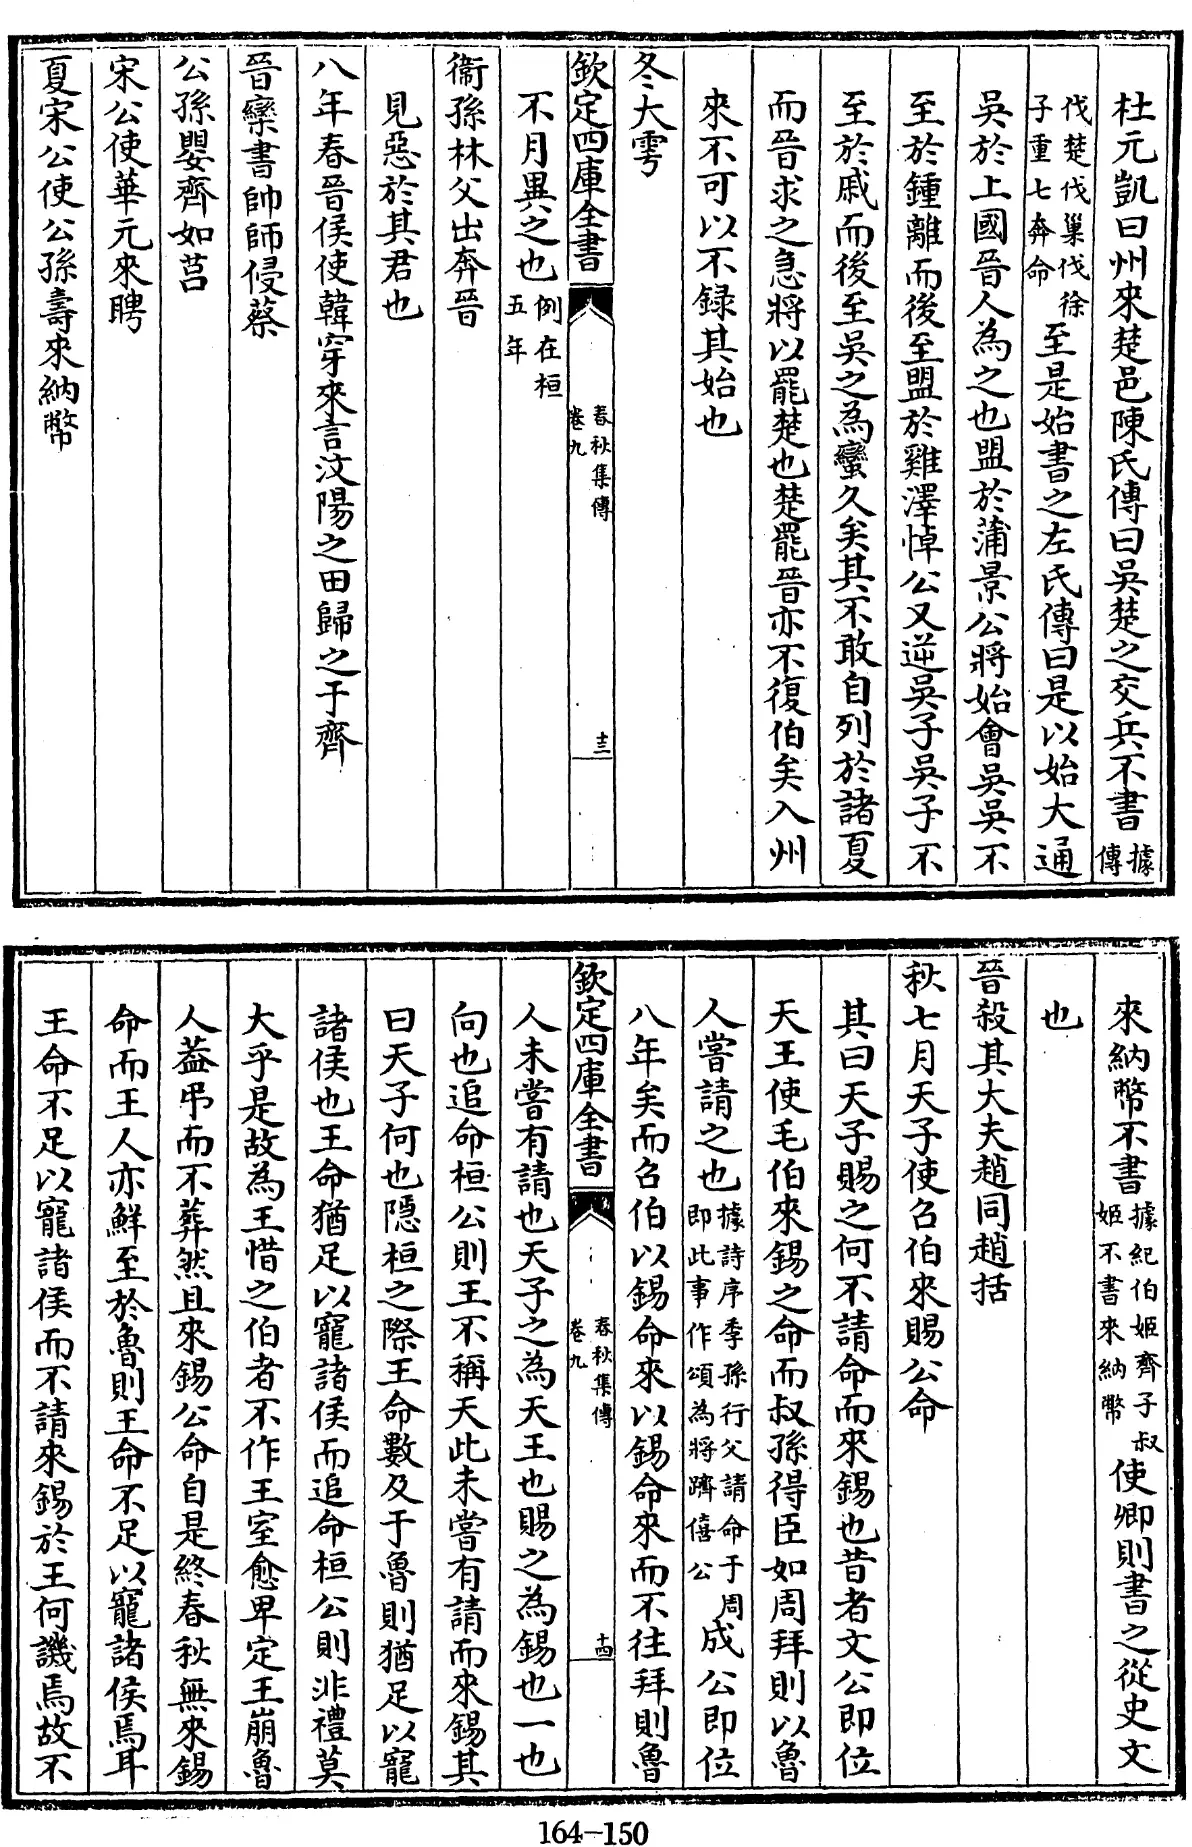 杜元凱曰州來楚邑陳氏傳曰吳楚之交兵不書據傳
伐楚伐巢伐徐子重七奔命至是始書之左氏傳曰是以始大通
吳於上國晉人為之也盟於蒲景公將始會吳吳不
至於鍾離而後至盟於雞澤悼公又逆吳子吳子不
至於戚而後至吳之為蠻久矣其不敢自列於諸夏
而晉求之急將以罷楚也楚罷晉亦不復伯矣入州
來不可以不録其始也
冬大雩
欽定四庫全書 春秋集傳卷九 十三
不月異之也例在桓五年
衞孫林父出奔晉
見惡於其君也
八年春晉侯使韓穿來言汶陽之田歸之于齊
晉欒書帥師侵蔡
公孫嬰齊如莒
宋公使華元來聘
夏宋公使公孫壽來納幣
來納幣不書據紀伯姬齊子叔姬不書來納幣使卿則書之從史文
也
晉殺其大夫趙同趙括
秋七月天子使召伯來賜公命
其曰天子賜之何不請命而來錫也昔者文公即位
天王使毛伯來錫之命而叔孫得臣如周拜則以魯
人嘗請之也據詩序季孫行父請命于周即此事作頌為將躋僖公成公即位
八年矣而召伯以錫命來以錫命來而不往拜則魯
欽定四庫全書 春秋集傳卷九 十四
人未嘗有請也天子之為天王也賜之為錫也一也
向也追命桓公則王不稱天此未嘗有請而來錫其
曰天子何也隠桓之際王命數及于魯則猶足以寵
諸侯也王命猶足以寵諸侯而追命桓公則非禮莫
大乎是故為王惜之伯者不作王室愈卑定王崩魯
人葢弔而不葬然且來錫公命自是終春秋無來錫
命而王人亦鮮至於魯則王命不足以寵諸侯焉耳
王命不足以寵諸侯而不請來錫於王何譏焉故不
164-150